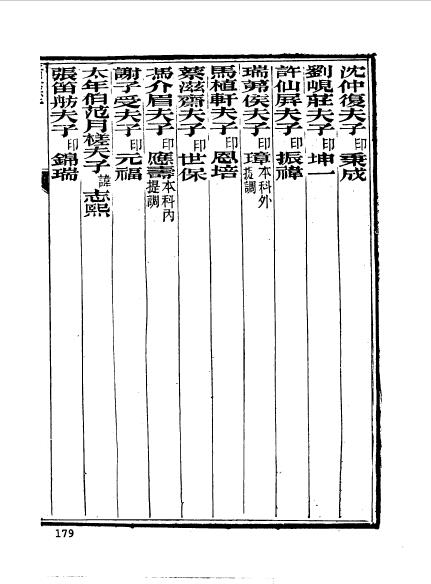 沈仲復夫子印秉成
劉峴莊夫子印坤一
許仙屏夫子印振禕
瑞茀侯夫子印璋本科外提調
馬植軒夫子印恩培
蔡滋齋夫子印世保
馮介眉夫子印應壽本科內提調
謝子受夫子印元福
太年伯范月槎夫子諱志熙
張笛舫夫子印錦瑞
179